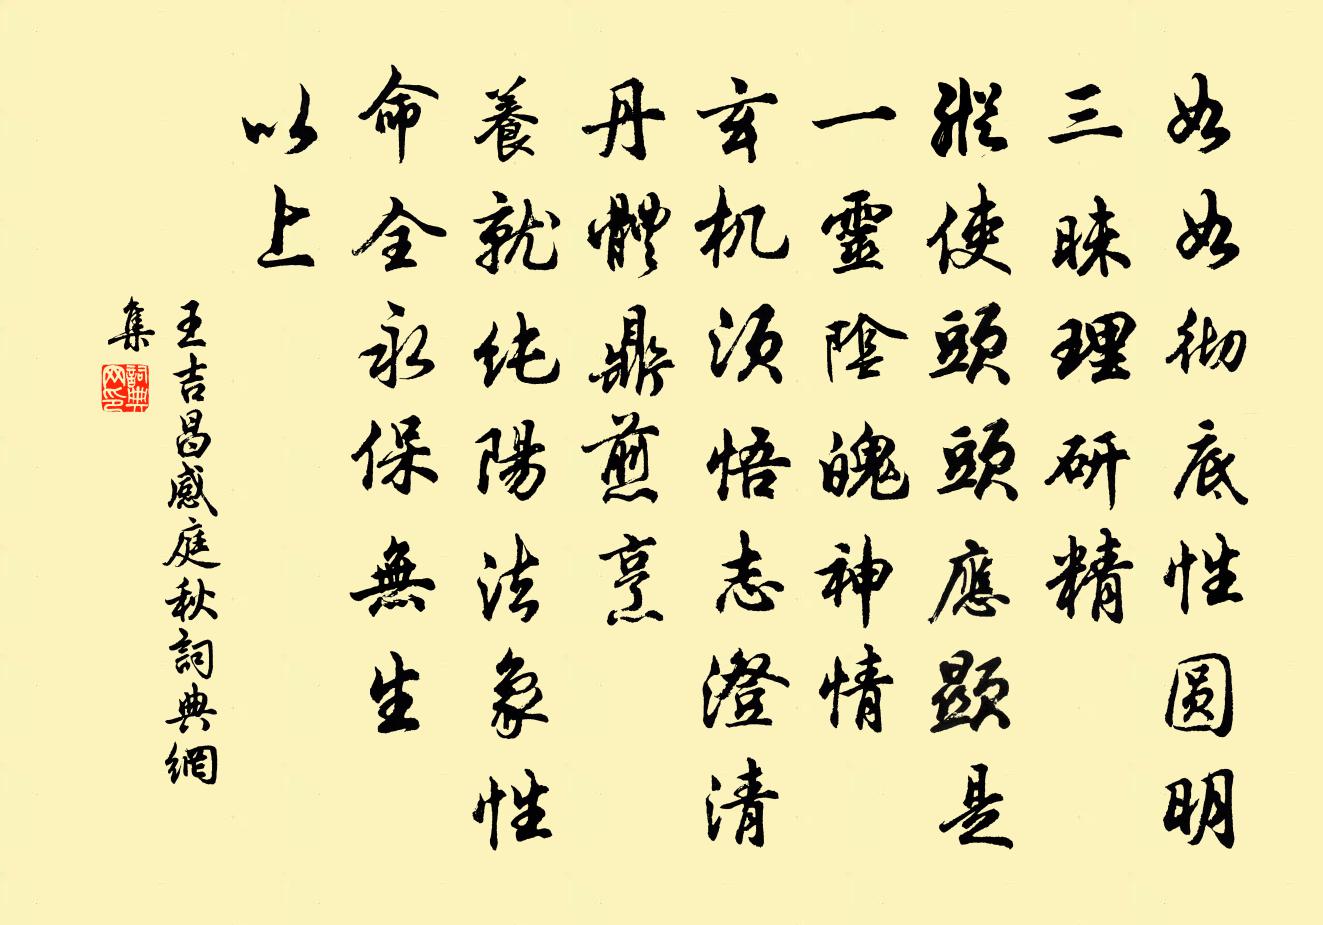 如如彻底性圆明
三昧理研精
縱使頭頭應顯是
一靈陰魄神情
玄机须悟志澄清
丹體鼎煎烹
養就纯陽法象性
命全永保無生
以上
王吉昌感庭秋詞典網
集
詞典
网印